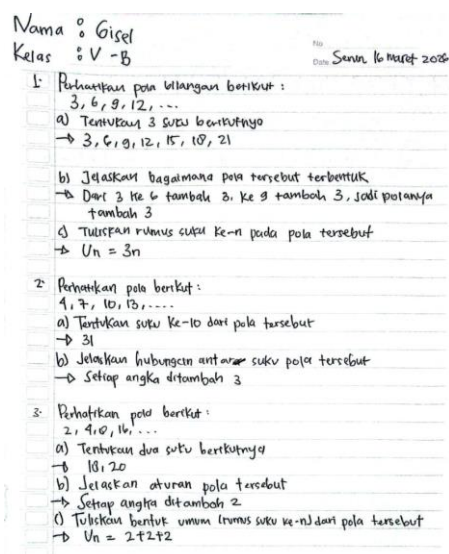 Nama : Gisel
Kelas : V - B
No
Date Senin 16 Maret 2026
1. Perhatikan pola bilangan berikut :
3, 6, 9, 12, ...
a) Tentukan 3 suku berikutnya
→ 3, 6, 9, 12, 15, 18, 21
b) Jelaskan bagaimana pola tersebut terbentuk
→ Dari 3 ke 6 tambah 3. ke 9 tambah 3, jadi polanya
tambah 3
c) Tuliskan rumus suku ke-n pada pola tersebut
→ Un = 3n
2. Perhatikan pola berikut :
4, 7, 10, 13, ....
a) Tentukan suku ke-10 dari pola tersebut
→ 31
b) Jelaskan hubungan antar suku pola tersebut
→ Setiap angka ditambah 3
3. Perhatikan pola berikut :
2, 4, 8, 16, ...
a) Tentukan dua suku berikutnya
→ 18, 20
b) Jelaskan aturan pola tersebut
→ Setiap angka ditambah 2
c) Tuliskan bentuk umum (rumus suku ke-n) dari pola tersebut
→ Un = 2+2+2